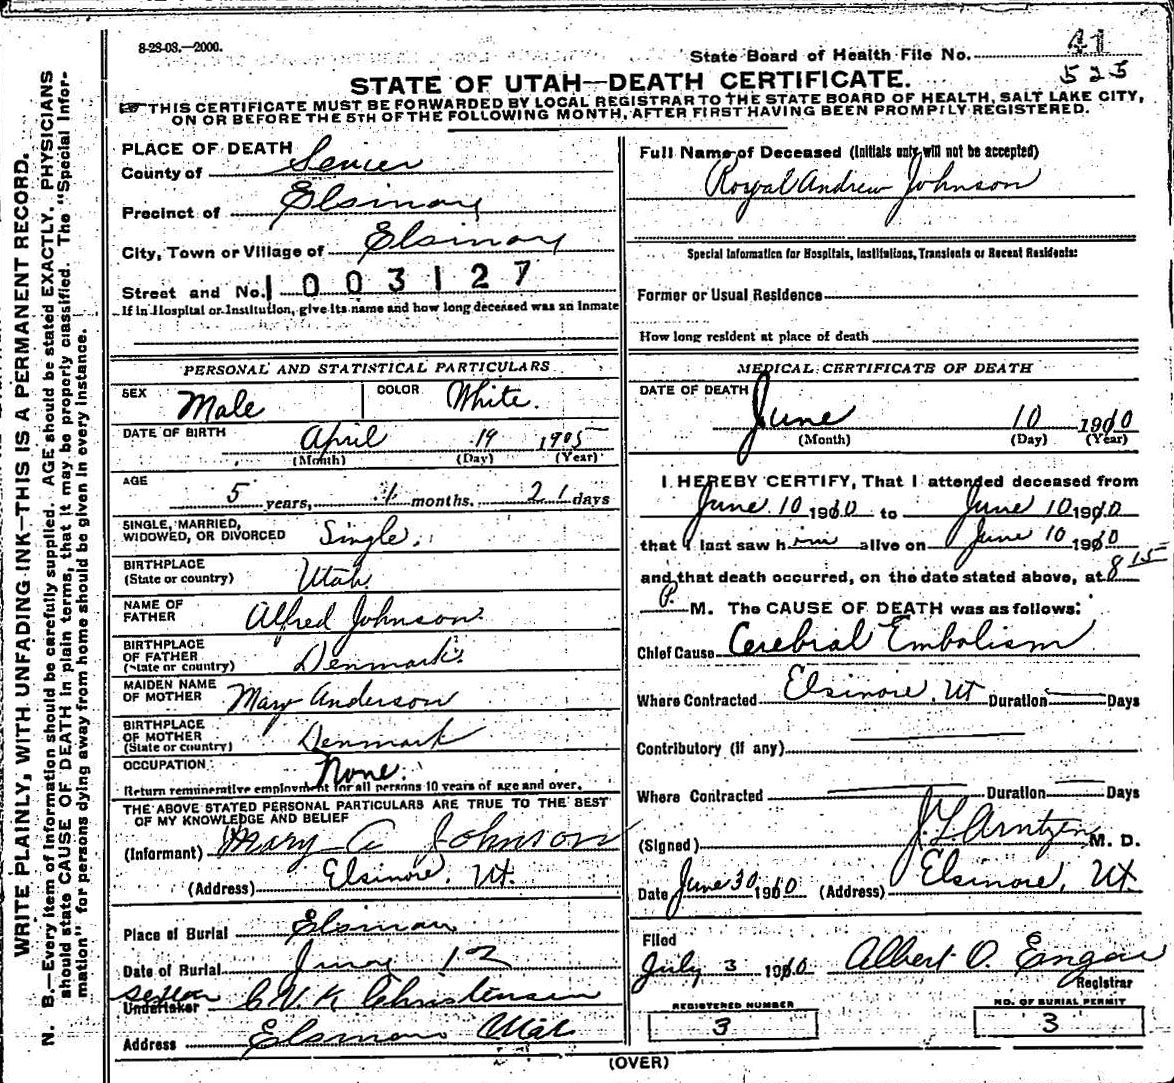 8-23-08.—2000.
State Board of Health File No. 41
525
STATE OF UTAH—DEATH CERTIFICATE.
THIS CERTIFICATE MUST BE FORWARDED BY LOCAL REGISTRAR TO THE STATE BOARD OF HEALTH, SALT LAKE CITY,
ON OR BEFORE THE 5TH OF THE FOLLOWING MONTH, AFTER FIRST HAVING BEEN PROMPTLY REGISTERED.
WRITE PLAINLY, WITH UNFADING INK—THIS IS A PERMANENT RECORD.
N. B.—Every item of information should be carefully supplied. AGE should be stated EXACTLY. PHYSICIANS
should state CAUSE OF DEATH in plain terms, that it may be properly classified. The "Special Infor-
mation" for persons dying away from home should be given in every instance.
PLACE OF DEATH
County of Sevier
Precinct of Elsinore
City, Town or Village of Elsinore
Street and No. 1003127
If in Hospital or Institution, give its name and how long deceased was an inmate
PERSONAL AND STATISTICAL PARTICULARS
SEX Male COLOR White.
DATE OF BIRTH April 19 1905
(Month) (Day) (Year)
AGE
5 years, 1 months. 21 days
SINGLE, MARRIED,
WIDOWED, OR DIVORCED Single.
BIRTHPLACE
(State or country) Utah
NAME OF
FATHER Alfred Johnson.
BIRTHPLACE
OF FATHER
(State or country) Denmark.
MAIDEN NAME
OF MOTHER Mary Anderson
BIRTHPLACE
OF MOTHER
(State or country) Denmark
OCCUPATION None.
Return remunerative employment for all persons 10 years of age and over.
THE ABOVE STATED PERSONAL PARTICULARS ARE TRUE TO THE BEST
OF MY KNOWLEDGE AND BELIEF
(Informant) Mary A Johnson
(Address) Elsinore, Ut.
Place of Burial Elsinore
Date of Burial June 12
Sexton
Undertaker C V K Christensen
Address Elsinore Utah
Full Name of Deceased (Initials only will not be accepted)
Royal Andrew Johnson
Special Information for Hospitals, Institutions, Transients or Recent Residents:
Former or Usual Residence
How long resident at place of death
MEDICAL CERTIFICATE OF DEATH
DATE OF DEATH
June 10 1910
(Month) (Day) (Year)
I HEREBY CERTIFY, That I attended deceased from
June 10 1910 to June 10 1910
that I last saw him alive on June 10 1910
and that death occurred, on the date stated above, at 8 15
P. M. The CAUSE OF DEATH was as follows:
Chief Cause Cerebral Embolism
Where Contracted Elsinore, Ut Duration Days
Contributory (if any)
Where Contracted Duration Days
(Signed) J. L. Arntzen M. D.
Date June 30 1910 (Address) Elsinore, Ut
Filed
July 3 1910 Albert O. Engar
Registrar
REGISTERED NUMBER
3
NO. OF BURIAL PERMIT
3
(OVER)